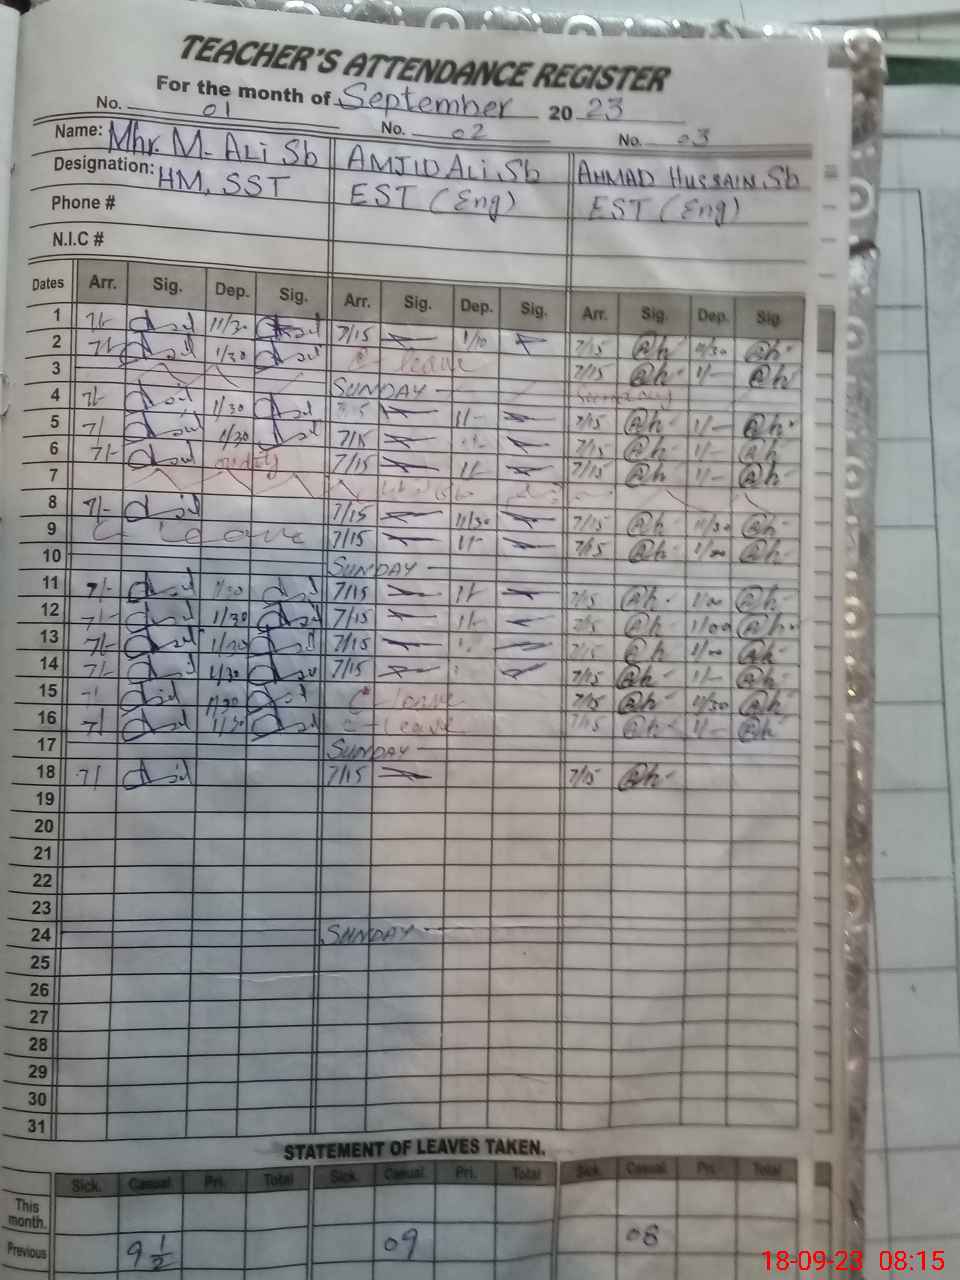 TEACHER'S ATTENDANCE REGISTER
For the month of September 20 23
No. 01 No. 02 No. 03
Name: Mhr. M. ALi Sb AMJID ALi Sb AHMAD HUSSAIN Sb
Designation: HM, SST EST (Eng) EST (Eng)
Phone #
N.I.C #
Dates Arr. Sig. Dep. Sig. Arr. Sig. Dep. Sig. Arr. Sig. Dep. Sig.
1 7/- 11/30 7/15 1/10 7/15 11/30
2 7/- 1/30 C-leave 7/15 1/-
3 SUNDAY Sunday
4 7/- 1/30 1/- 7/15 1/-
5 7/ 1/30 7/15 7/15 1/-
6 7/- 7/15 1/- 7/15 1/-
7
8 7/- 7/15 11/30 7/15 11/30
9 C leave 7/15 1/- 7/15 1/00
10 SUNDAY
11 7/- 1/30 7/15 1/- 7/15 1/00
12 7/- 1/30 7/15 1/- 7/15 1/00
13 7/- 1/30 7/15 7/15 1/00
14 7/- 1/30 7/15 7/15 1/-
15 7/ 11/30 C leave 7/15 11/30
16 7/ 1/30 C-leave 7/15 1/-
17 SUNDAY
18 7/ 7/15 7/15
19
20
21
22
23
24 SUNDAY
25
26
27
28
29
30
31
STATEMENT OF LEAVES TAKEN.
Sick. Casual. Pri. Total Sick. Casual. Pri. Total Sick. Casual Pri. Total
This
month.
Previous 9 1/2 09 08
18-09-23 08:15